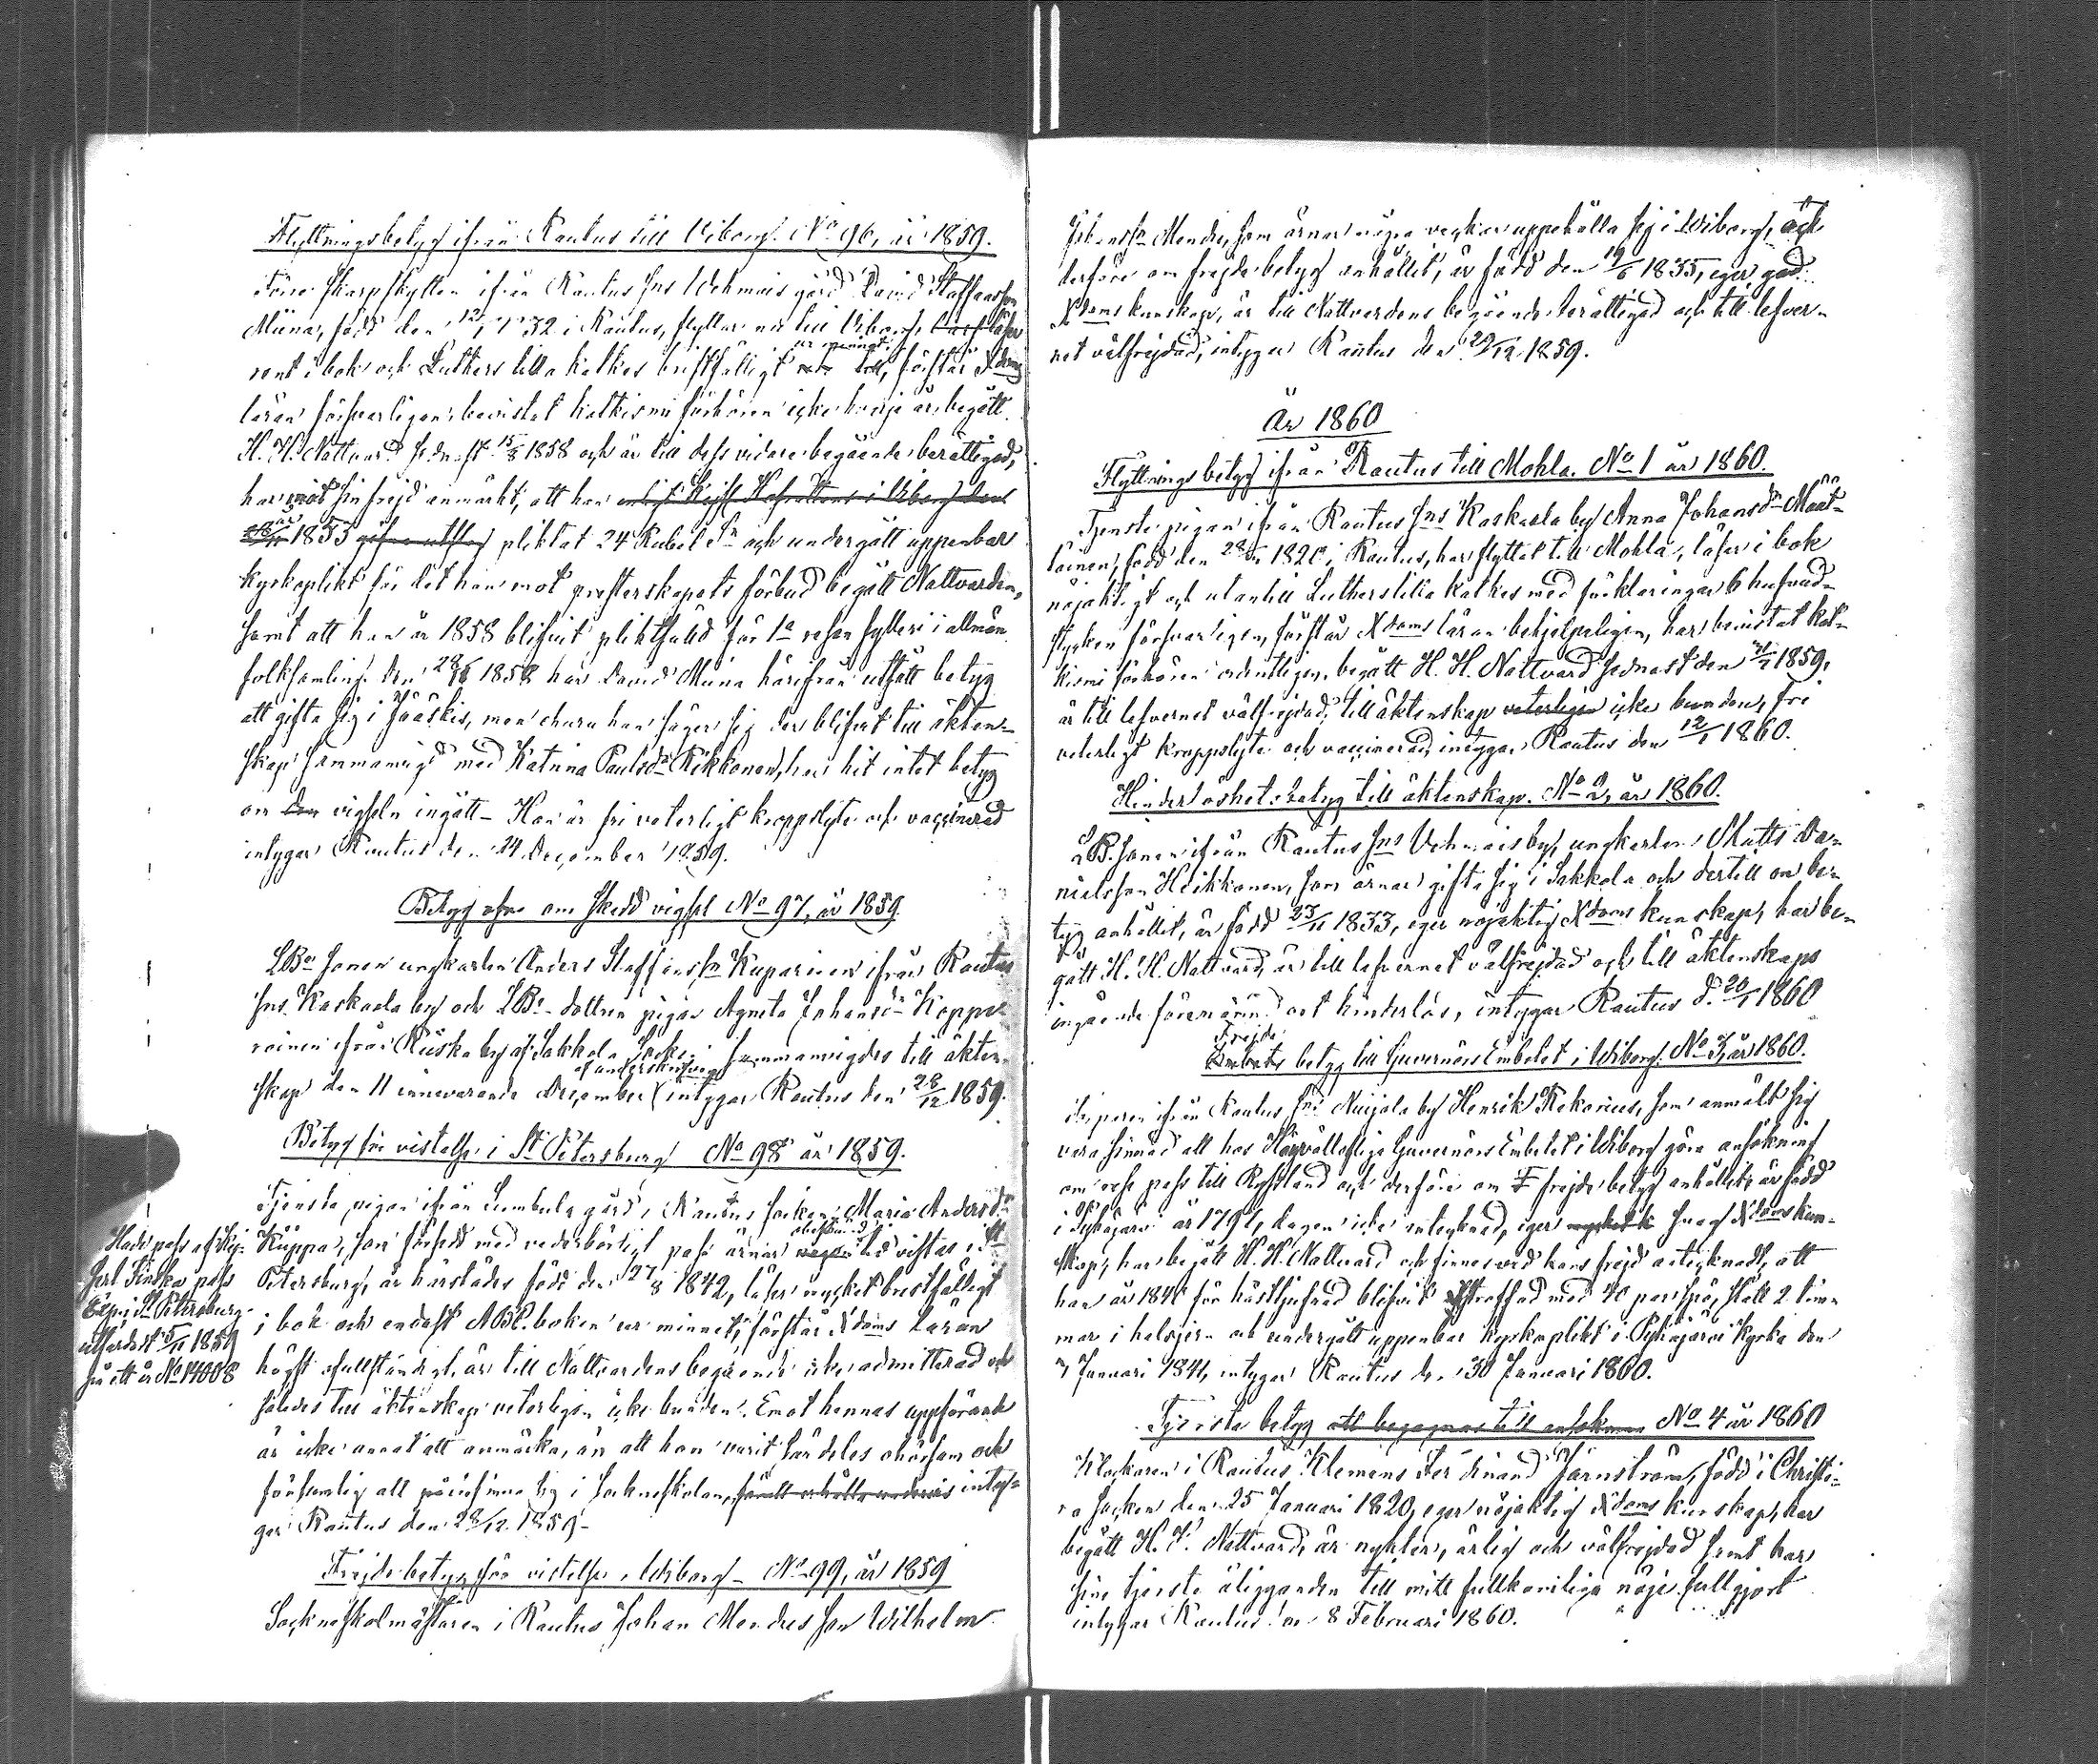 Flyttningsbetyg ifrån Rautus till Viborg. No 96, år 1859.
Förre Skarpskytten ifrån Rautus Sns Wehmais gård David Staffansson
Miina, född den 12/7 1832 i Rautus, flyttar nu till Viborg, läser
rent i bok och Luthers lilla katkes bristfälligt ur minnet, förstår Xdoms
läran försvarligen, bevistat katkismi förhören icke hvarje år, begått
H. H. Nattvard sednast 15/8 1858 och är till dess vidare begående berättigad,
har emot sin frejd anmärkt, att han enligt Kejs. Hofrättens i Viborg den
år 1853 gifna utslag pliktat 24 Rubel Sr och undergått uppenbar
kyrkoplikt för det han emot presterskapets förbud begått Nattvarden,
samt att han år 1858 blifvit pliktfälld för 1a resan fylleri i allmän
folksamling. Den 28/8 1858 har David Miina härifrån utfått betyg
att gifta sig i Jääskis, men ehuru han säger sig der blifvit till äkten-
skap sammanvigd med Katrina Paulsdr Kikkonen, har hit intet betyg
om den vigseln ingått. Han är fri veterligt kroppslyte och vaccinerad
intygar Rautus den 24 December 1859.
Betyg om skedd vigsel No 97, år 1859.
LBo sonen ungkarlen Anders Staffansson Kuparinen ifrån Rautus
Sns Kaskaala by och LBo dottren pigan Agneta Johansdr Koppa-
roinen ifrån Riiska by af Sakkola Socken sammanvigdes till äkten-
skap den 11 innevarande December af undertecknad, intygar Rautus den 28/12 1859.
Betyg för vistelse i St Petersburg No 98 år 1859.
Tjenste pigan ifrån Sumbula gård i Rautus Socken Maria Andersdr
Kuppa, som försedd med vederbörligt pass ärnar någon tid vistas i St
Petersburg, är härstädes född den 27/8 1842, läser mycket bristfälligt
i bok och endast ABC. boken ur minnet, förstår Xdoms Läran
högst ofullständigt, är till Nattvardens begående icke admitterad och
således till äktenskap veterligen icke bunden. Emot hennes uppförande
är icke annat att anmärka, än att hon varit särdeles ohörsam och
försumlig att infinna sig i Sockneskolan, inty-
gar Rautus den 28/12 1859.
Hade pass af Kej-
serl. Finska pass
Exp. i St Petersburg
utfärdadt 5/11 1859
på ett år No 14008
Frejde betyg för vistelse i Wiborg. No 99, år 1859
Sockneskolmästaren i Rautus Johan Mendres son Wilhelm
Johansson Mendre, som ärnar några veckor uppehålla sig i Wiborg, och
derföre om frejdebetyg anhållit, är född den 19/6 1835, eger god
Xdoms kunskap, är till Nattvardens begående berättigad och till lefver-
net välfrejdad, intygar Rautus den 29/12 1859.
År 1860
Flyttningsbetyg ifrån Rautus till Mohla. No 1 år 1860.
Tjenste pigan ifrån Rautus Sns Kaskaala by Anna Johansdr Määt-
täinen, född den 1820 i Rautus, har flyttat till Mohla, läser i bok
nöjaktigt och utantill Luthers lilla katkes med förklaringar 6 hufvud-
stycken försvarligen, förstår Xdoms läran behjelpligen, har bevistat kat-
kismi förhören ordentligen, begått H. H. Nattvard sednast den 1859,
är till lefvernet välfrejdad, till äktenskap veterligen icke bunden, fri
veterligt kroppslyte och vaccinerad, intygar Rautus den 12/1 1860.
Hinderlöshetsbetyg till äktenskap. No 2, år 1860.
LB. sonen ifrån Rautus Sns Vehmais by, ungkarlen Matts Da-
nielsson Heikkonen, som ärnar gifta sig i Sakkola och dertill om be-
tyg anhållit, är född 23/11 1833, eger nöjaktig Xdoms kunskap, har be-
gått H. H. Nattvard, är till lefvernet välfrejdad och till äktenskaps
ingående förenämndt ort hinderlös, intygar Rautus d. 20/1 1860
Frejde betyg till Guvernörs Embetet i Wiborg. No 3, år 1860.
ifrån Rautus Sns Nuijala by Henrik Kekoinen, som anmält sig
vara sinnad att hos Högvällofliga Guvernörs Embetet i Wiborg göra ansökning
om rese pass till Ryssland och derföre om frejde betyg anhållit, är född
i Pyhäjärvi år 1791, dagen icke antecknad, eger svag Xdoms kun-
skap, har begått H. H. Nattvard och finnes vid hans frejd antecknadt, att
han år 1840 för hästtjufnad blifvit straffad med 40 par spö, stått 2 tim-
mar i halsjern och undergått uppenbar kyrkoplikt i Pyhäjärvi kyrka den
7 Januari 1841, intygar Rautus den 30 Januari 1860.
Tjenste betyg att begagnas till ansökning No 4 år 1860
Klockaren i Rautus Klemens Ferdinand Järnström, född i Christi-
na Socken den 25 Januari 1820, eger nöjaktig Xdoms kunskap, har
begått H. H. Nattvard, är nykter, ärlig och välfrejdad samt har
sine tjenste åligganden till mitt fullkomliga nöje fullgjort
intygar Rautus den 8 Februari 1860.